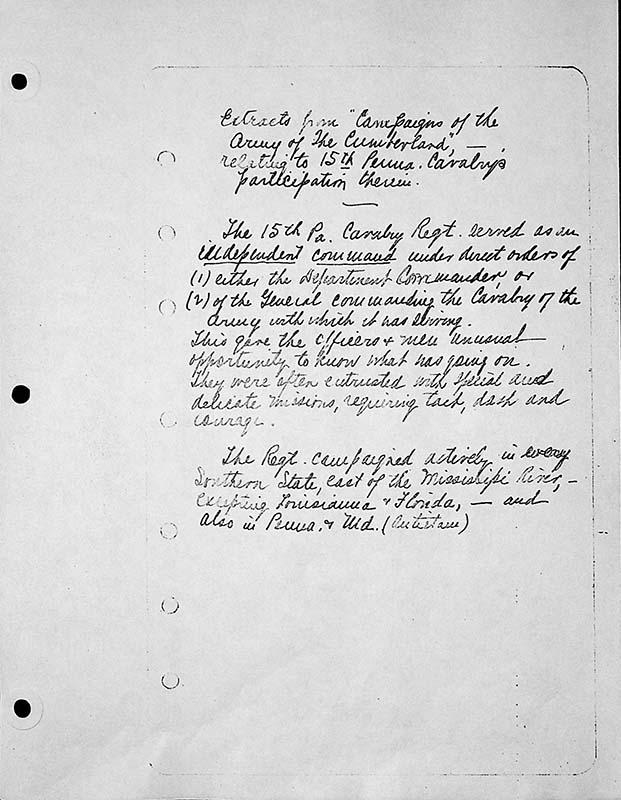 Extracts from "Campaigns of the
Army of The Cumberland", —
relating to 15th Penna. Cavalry's
participation therein.
The 15th Pa. Cavalry Regt. served as an
independent command under direct orders of
(1) either the Department Commander, or
(2) of the General commanding the Cavalry of the
Army with which it was serving.
This gave the Officers & men unusual
opportunity to know what was going on.
They were often entrusted with special and
delicate missions, requiring tact, dash and
courage.
The Regt. campaigned actively in every
Southern State, east of the Mississippi River, –
excepting Louisianna & Florida, — and
also in Penna. & Md. (Antietam)